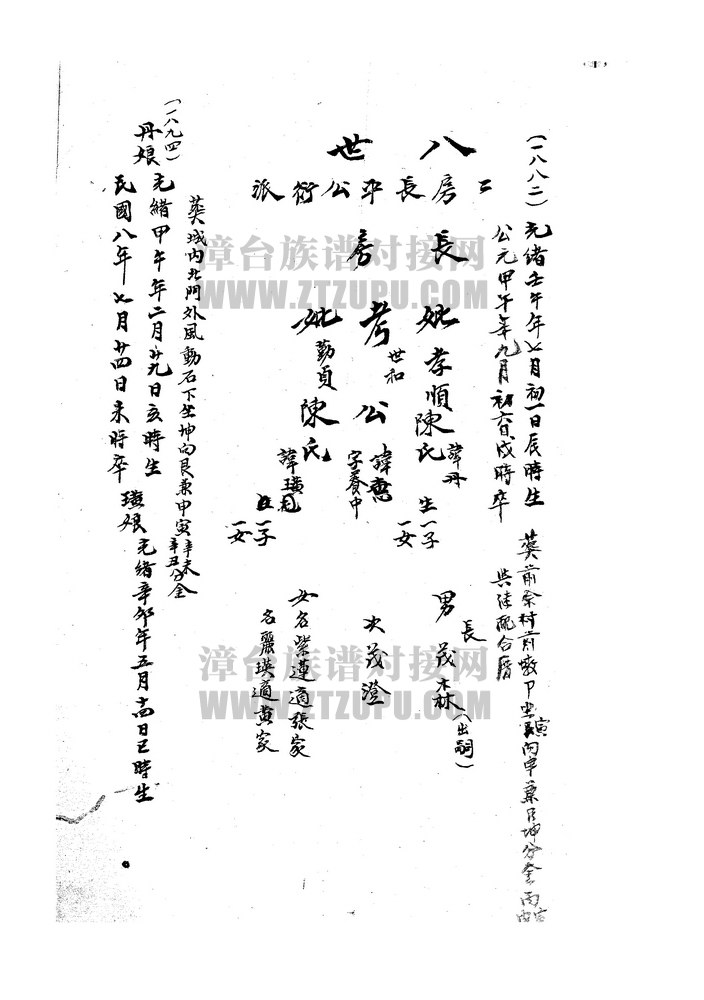 (一八八二)
光緒壬午年七月初一日辰時生
公元甲午年九月初六日戌時卒
葬前余村前墩下坐寅向申兼艮坤分金丙寅
與佳配合厝
八世
二房長平公衍派
長妣孝順陳氏 諱丹 生一子一女
房考世和公 諱惠 字養中
妣勤貞陳氏 諱璜
一子一女
男長茂森(出嗣)
次茂澄
女名紫蓮適張家
名麗瑛適黃家
葬城內北門外風動石下坐坤向艮兼申寅辛未辛丑分金
(一八九四)
丹娘 光緒甲午年二月廿九日亥時生
民國八年七月廿四日未時卒
璜娘 光緒辛卯年五月十四日巳時生
漳台族谱对接网
WWW.ZTZUPU.COM
漳台族谱对接网
WWW.ZTZUPU.COM